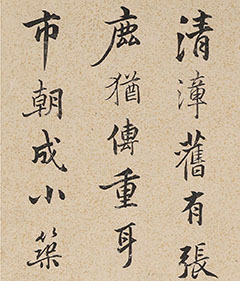 清漳舊有張
鹿猶傳重耳
市朝成小築